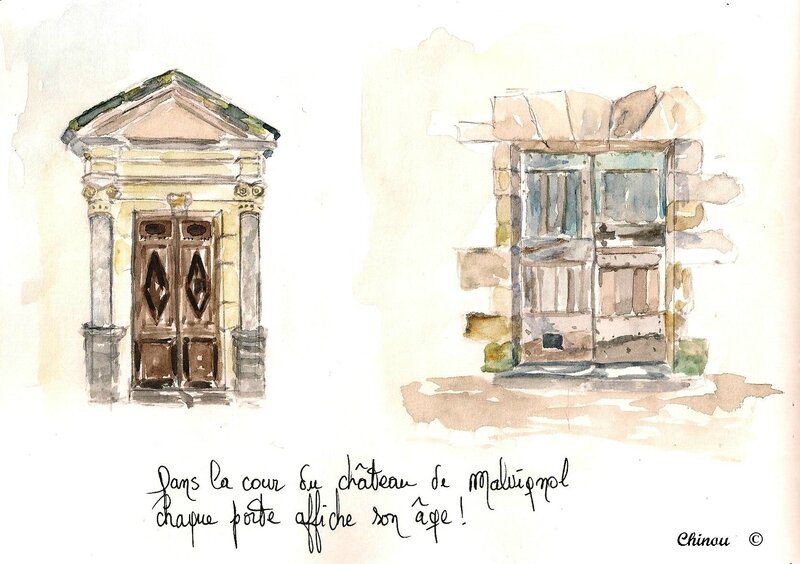 Dans la cour du château de Malvignol
chaque porte affiche son âge !
Chinou ©